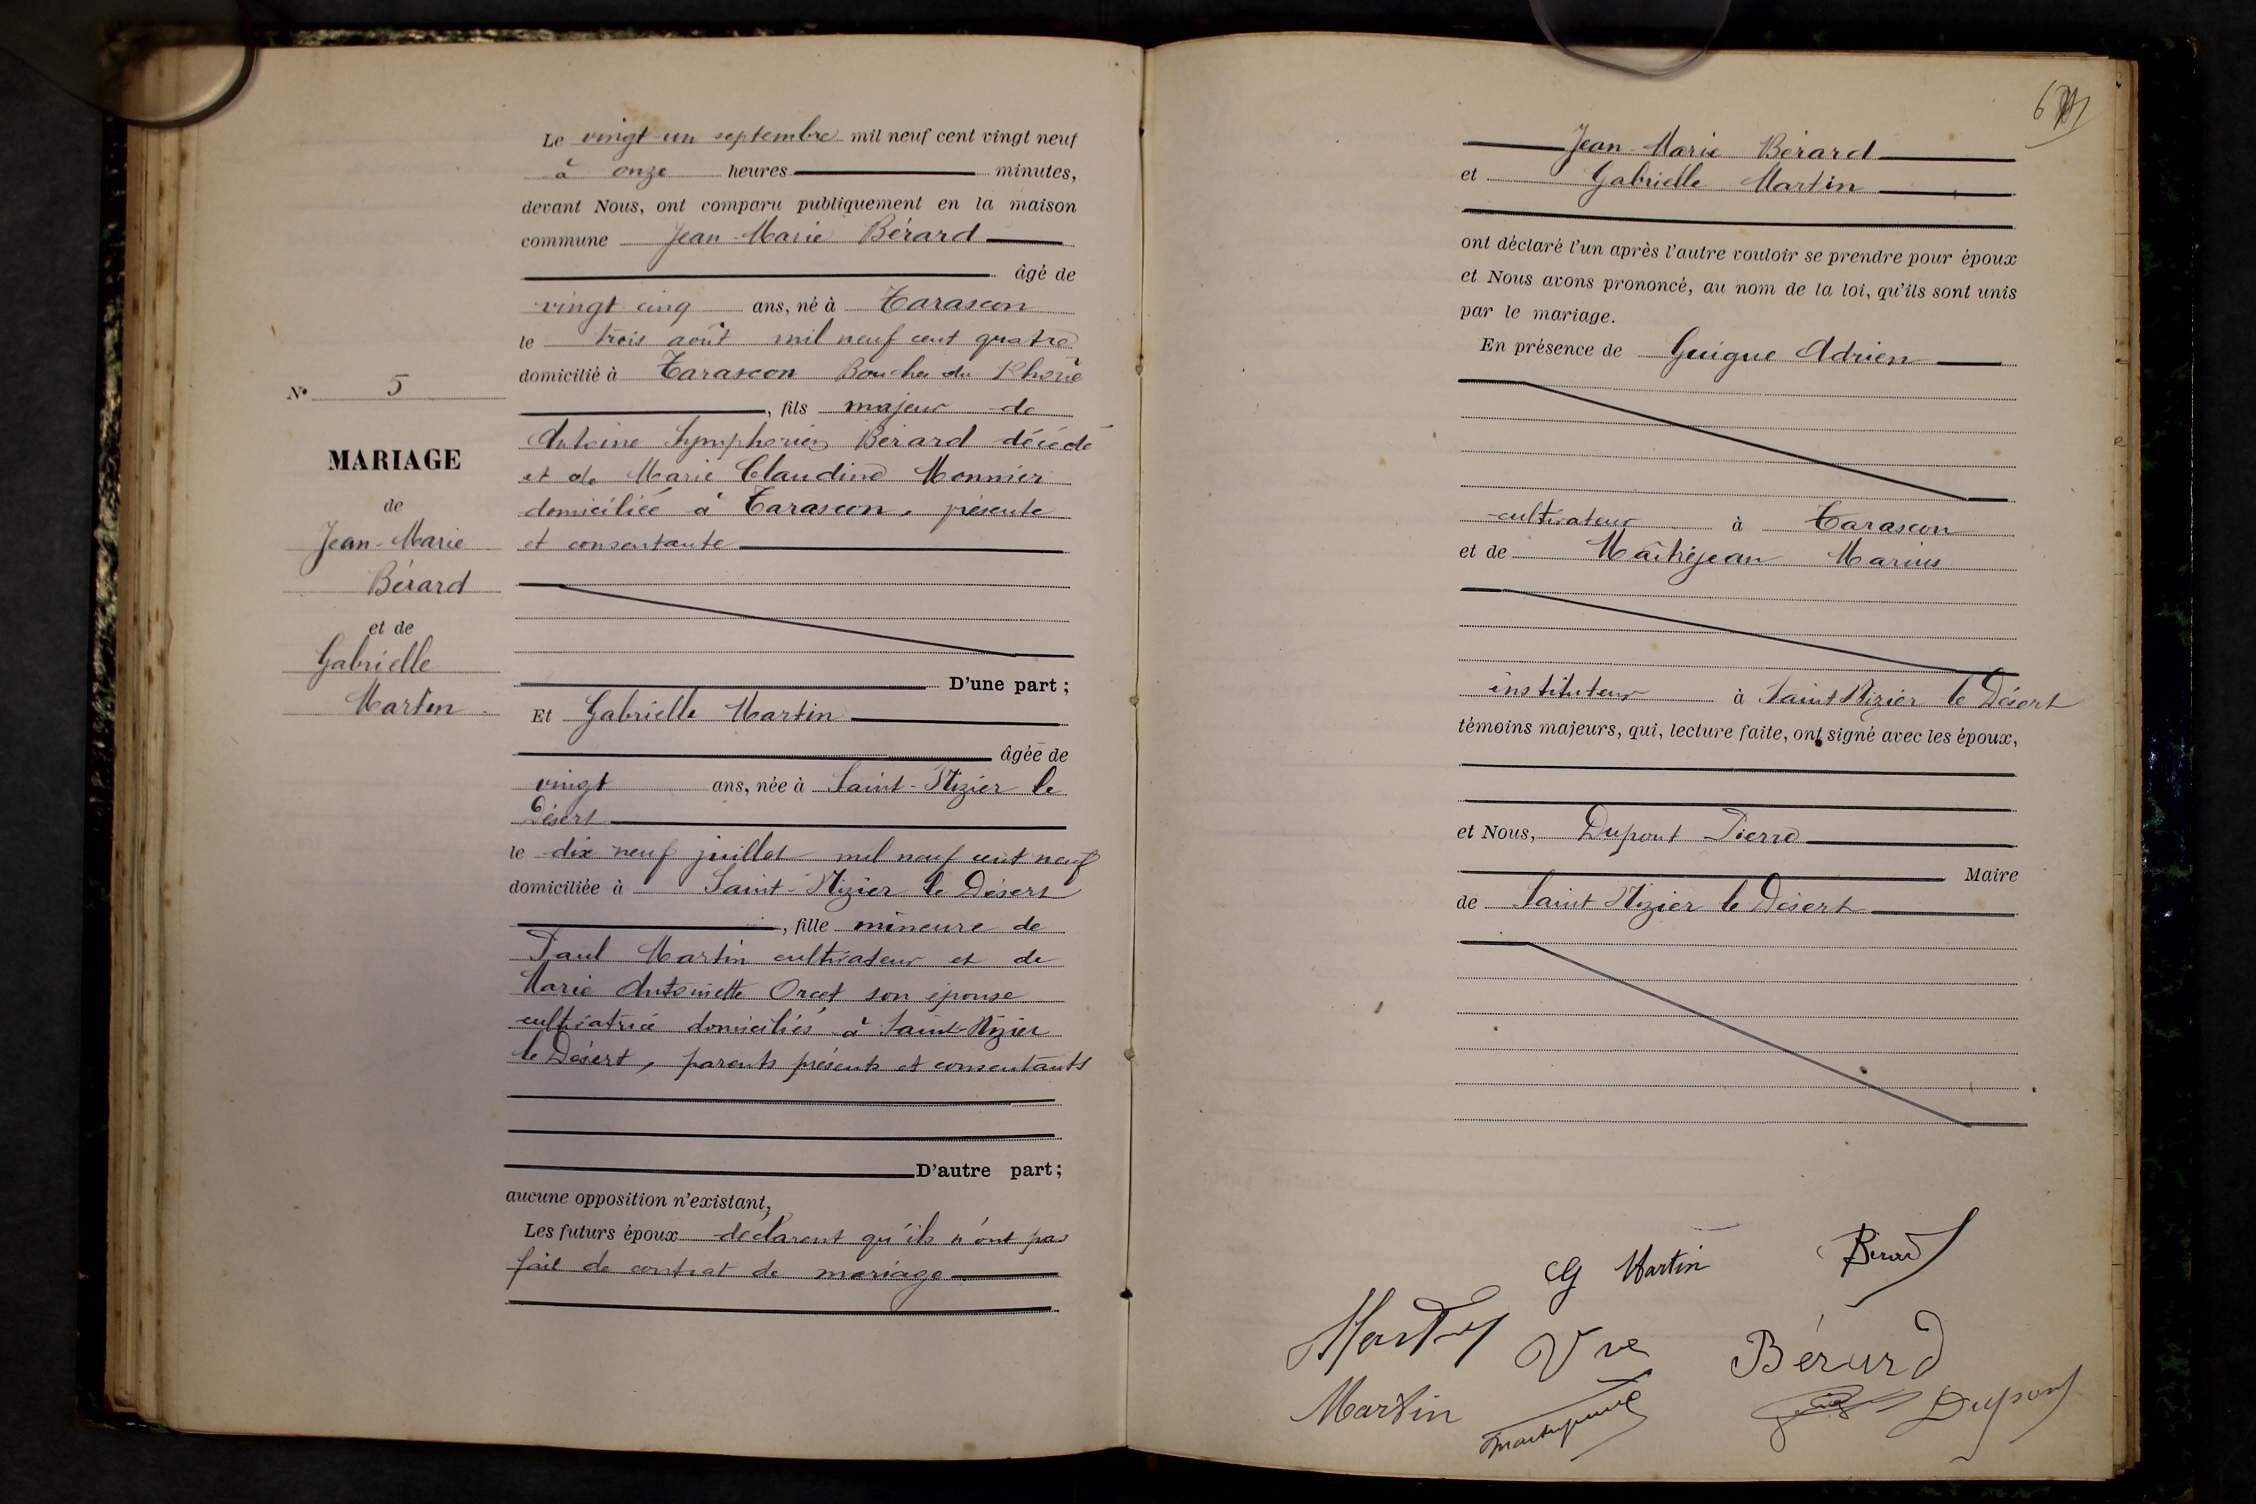 Le vingt-un septembre mil neuf cent vingt neuf
à onze heures minutes,
devant Nous, ont comparu publiquement en la maison
commune Jean-Marie Bérard
âgé de
vingt cinq ans, né à Tarascon
le trois août mil neuf cent quatre
domicilié à Tarascon Bouches du Rhône
, fils majeur de
Antoine Symphorien Bérard décédé
et de Marie Claudine Monnier
domiciliée à Tarascon, présente
et consentante
D'une part ;
N° 5
MARIAGE
de
Jean-Marie
Bérard
et de
Gabrielle
Martin
Et Gabrielle Martin
âgée de
vingt ans, née à Saint-Nizier le
Désert
le dix neuf juillet mil neuf cent neuf
domiciliée à Saint-Nizier le Désert
, fille mineure de
Paul Martin cultivateur et de
Marie Antoinette Orcet son épouse
cultivatrice domiciliés à Saint-Nizier
le Désert, parents présents et consentants
D'autre part ;
aucune opposition n'existant,
Les futurs époux déclarent qu'ils n'ont pas
fait de contrat de mariage
Jean-Marie Bérard
et Gabrielle Martin
ont déclaré l'un après l'autre vouloir se prendre pour époux
et Nous avons prononcé, au nom de la loi, qu'ils sont unis
par le mariage.
En présence de Guigue Adrien
cultivateur à Tarascon
et de Maîtrejean Marius
instituteur à Saint Nizier le Désert
témoins majeurs, qui, lecture faite, ont signé avec les époux,
et Nous, Dupont Pierre
Maire
de Saint Nizier le Désert
G Martin Berard
Martin Vve Bérard
Martin Maitrejean Dupont